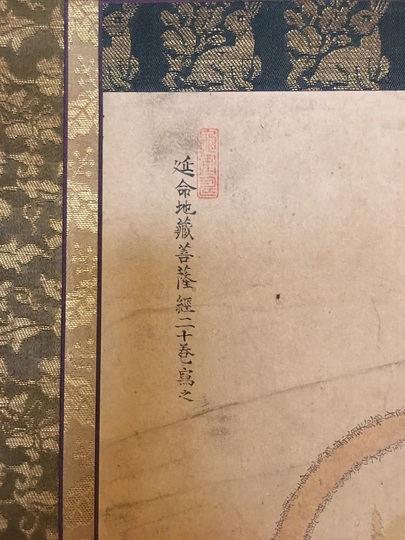 延命地藏菩薩經二十卷寫之